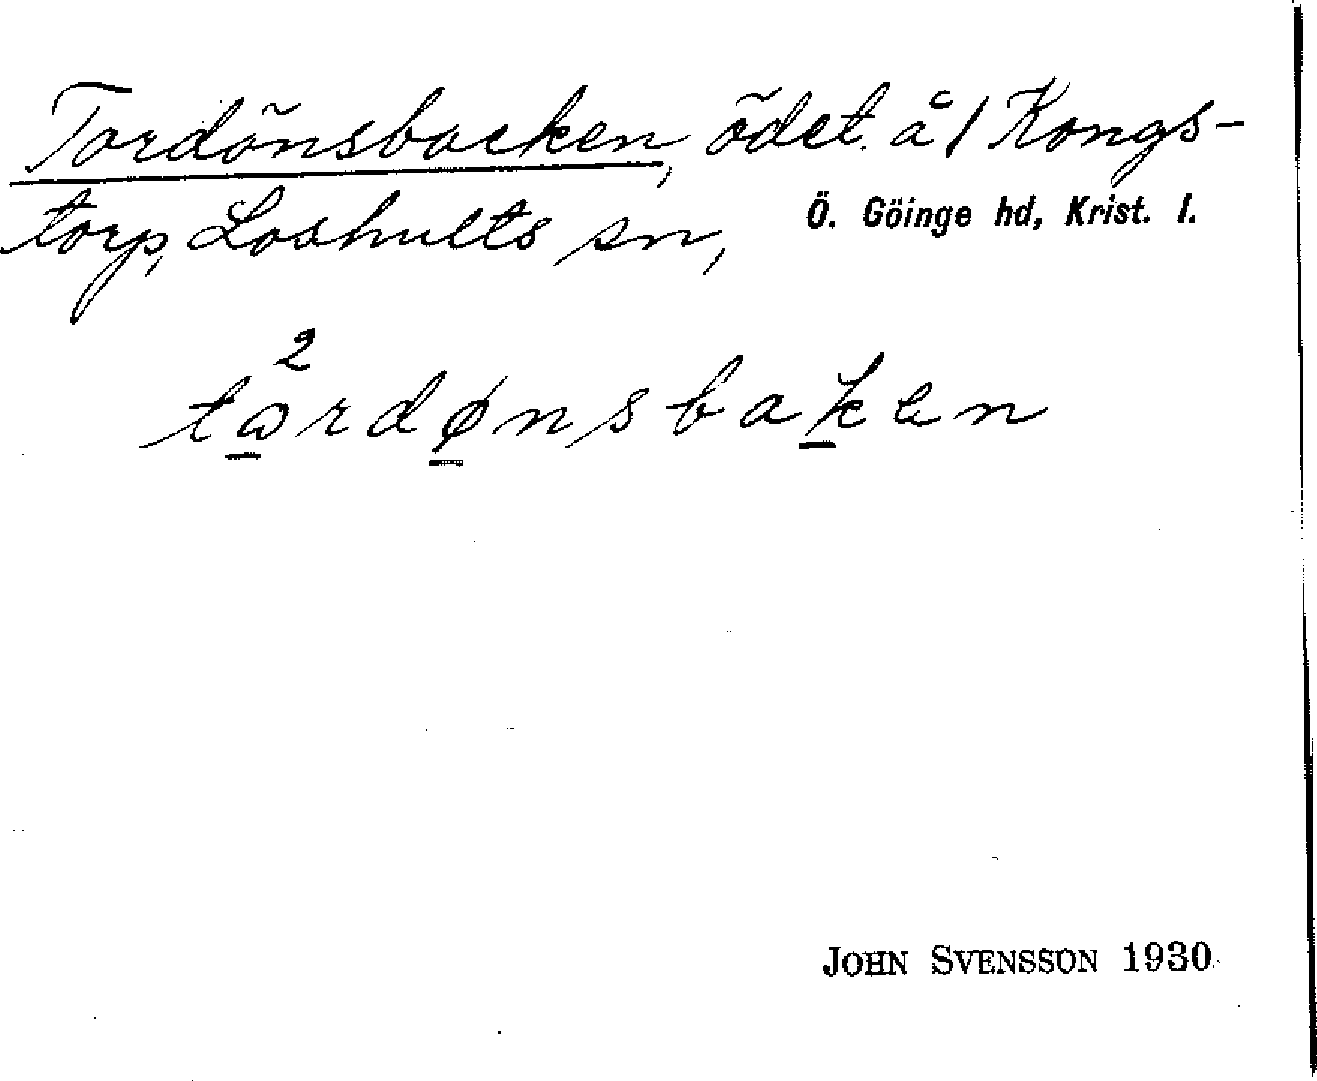 Tordönsbacken, ödet. å 1 Kongs-
torp, Loshults sn, Ö. Göinge hd, Krist. l.
2
tωrdønsbaken
JOHN SVENSSON 1930